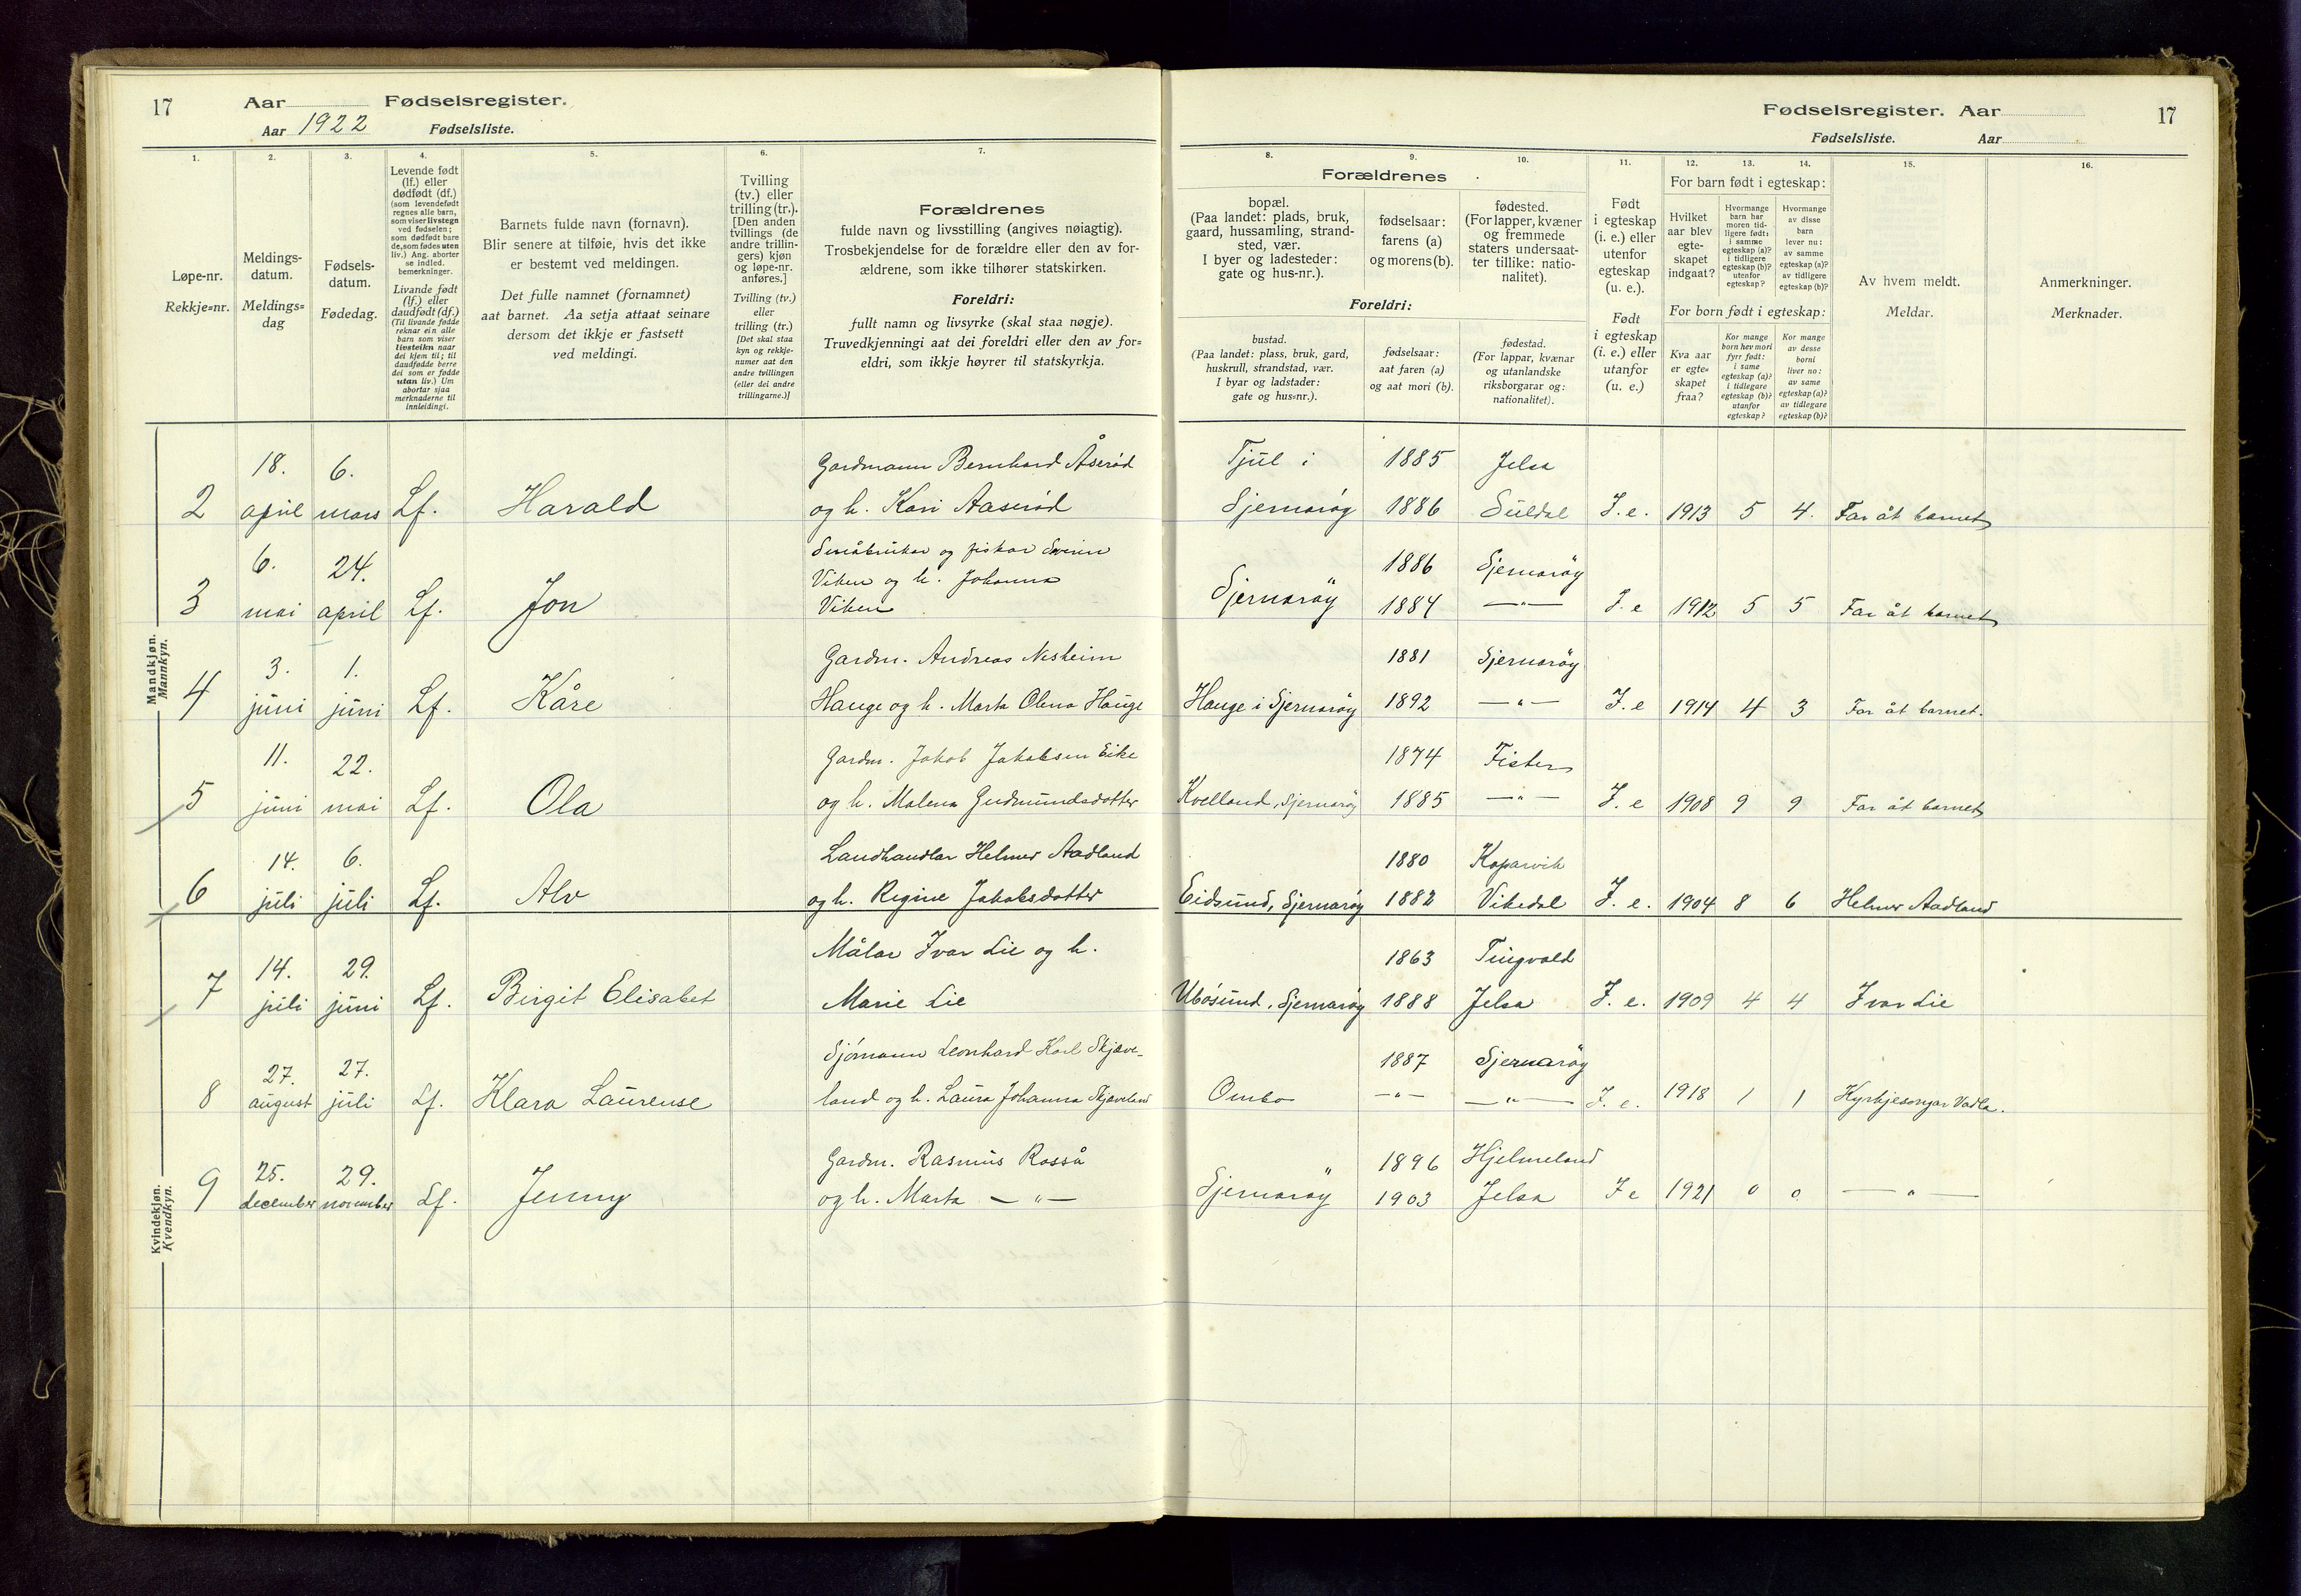 17 Aar Fødselsregister.
Aar 1922 Fødselsliste.
Fødselsregister. Aar 17
Fødselsliste. Aar
1.
Løpe-nr.
Rekkje=nr.
2.
Meldings-
datum.
Meldings=
dag
3.
Fødsels-
datum.
Fødedag.
4.
Levende født
(lf.) eller
dødfødt (df.)
(som levendefødt
regnes alle barn,
som viser livstegn
ved fødselen;
som dødfødt bare
de, som fødes uten
liv.) Ang. aborter
se indled.
bemerkninger.
Livande født
(lf.) eller
daudfødt (df.)
(Til livande fødde
reknar ein alle
barn som viser
livsteikn naar
dei kjem til; til
daudfødde berre
dei som er fødde
utan liv.) Um
abortar sjaa
merknaderne til
innleidingi.
5.
Barnets fulde navn (fornavn).
Blir senere at tilføie, hvis det ikke
er bestemt ved meldingen.
Det fulle namnet (fornamnet)
aat barnet. Aa setja attaat seinare
dersom det ikkje er fastsett
ved meldingi.
6.
Tvilling
(tv.) eller
trilling (tr.).
[Den anden
tvillings (de
andre trillin-
gers) kjøn
og løpe-nr.
anføres.]
Tvilling (tv.)
eller
trilling (tr.)
[Det skal staa
kyn og rekkje-
numer aat den
andre tvillingen
(eller dei andre
trillingarne.)]
7.
Forældrenes
fulde navn og livsstilling (angives nøiagtig).
Trosbekjendelse for de forældre eller den av for-
ældrene, som ikke tilhører statskirken.
Foreldri:
fullt namn og livsyrke (skal staa nøgje).
Truvedkjenningi aat dei foreldri eller den av for=
eldri, som ikkje høyrer til statskyrkja.
Forældrenes
8.
bopæl.
(Paa landet: plads, bruk,
gaard, hussamling, strand-
sted, vær.
I byer og ladesteder:
gate og hus-nr.).
9.
fødselsaar:
farens (a)
og morens (b).
10.
fødested.
(For lapper, kvæner
og fremmede
staters undersaat-
ter tillike: natio-
nalitet).
Foreldri:
bustad.
(Paa landet: plass, bruk, gard,
huskrull, strandstad, vær.
I byar og ladstader:
gate og hus=nr.).
fødselsaar:
aat faren (a)
og aat mori (b).
fødestad.
(For lappar, kvænar
og utanlandske
riksborgarar og:
nationalitet).
11.
Født
i egteskap
(i. e.) eller
utenfor
egteskap
(u. e.).
Født
i egteskap
(i. e.) eller
utanfor
(u. e.)
12. 13. 14.
For barn født i egteskap:
Hvilket
aar blev
egte-
skapet
indgaat?
Hvormange
barn har
moren tid-
ligere født:
i samme
egteskap (a)?
i tidligere
egteskap (b)?
utenfor
egteskap?
Hvormange
av disse
barn
lever nu:
av samme
egteskap (a)?
av tidligere
egteskap (b)?
For born født i egteskap:
Kva aar
er egte=
skapet
fraa?
Kor mange
born hev mori
fyrr født:
i same
egteskap (a)?
i tidlegare
egteskap (b)?
utanfor
egteskap?
Kor mange
av desse
borni
liver no:
av same
egteskap (a)?
av tidlegare
egteskap (b)?
15.
Av hvem meldt.
Meldar.
16.
Anmerkninger.
Merknader.
Mandkjøn.
Mannkyn.
18. 6. Gardmann Bernhard Åserød Tjul i 1885 Jelsa
2 april mars Lf. Harald og h. Kari Aaserød Sjernarøy 1886 Suldal I.e. 1913 5 4. Far åt barnet
6. 24. Småbrukar og fiskar 1886 Sjernarøy
Viken og h. Johanna
3 mai april Lf. Jon Viken Sjernarøy 1884 —"— I.e 1912 5 5 Far åt barnet
3. 1. Gardm. Andreas Nesheim 1881 Sjernarøy
4 juni juni Lf. Kåre Hauge og h. Marta Olena Hauge Hauge i Sjernarøy 1892 —"— I.e 1914 4 3 Far åt barnet.
11. 22. Gardm. Jakob Jakobsen Eike 1874 Fister
5 juni mai Lf. Ola og h. Malena Gudmundsdotter Kvelland, Sjernarøy 1885 —"— I.e 1908 9 9 Far åt barnet
14. 6. Landhandlar Helmer Aadland 1880 Kopervik
6 juli juli Lf. Alv og h. Regine Jakobsdotter Eidsund, Sjernarøy 1882 Vikedal I.e. 1904 8 6 Helmer Aadland
Kvindekjøn.
Kvendkyn.
14. 29. Målar Ivar Lie og h. 1863 Tingvold
7 juli juni Lf. Birgit Elisabet Marie Lie Ubøsund, Sjernarøy 1888 Jelsa I.e. 1909 4 4 Ivar Lie
27. 27. Sjømann Leonhard Karl Skjæve- 1887 Sjernarøy
8 august juli Lf. Klara Laurense land og h. Laura Johanna Skjæveland Ombo —"— —"— I.e. 1918 1 1 Kyrkjesongar Vadla.
25. 29. Gardm. Rasmus Rosså " 1896 Hjelmeland
9 december november Lf. Jenny og h. Marta —"— Sjernarøy 1903 Jelsa I e 1921 0 0 —"—